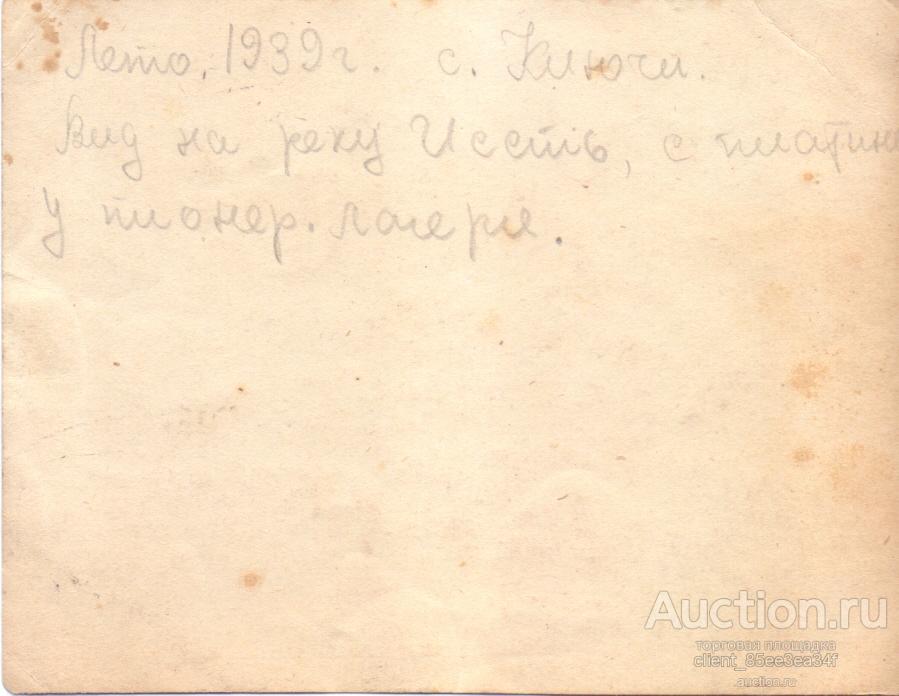 Лето, 1939 г. с. Ключи.
Вид на реку Исеть, с платины
У пионер. лагеря.
Auction.ru
торговая площадка
client_85ee3ea34f
auction.ru